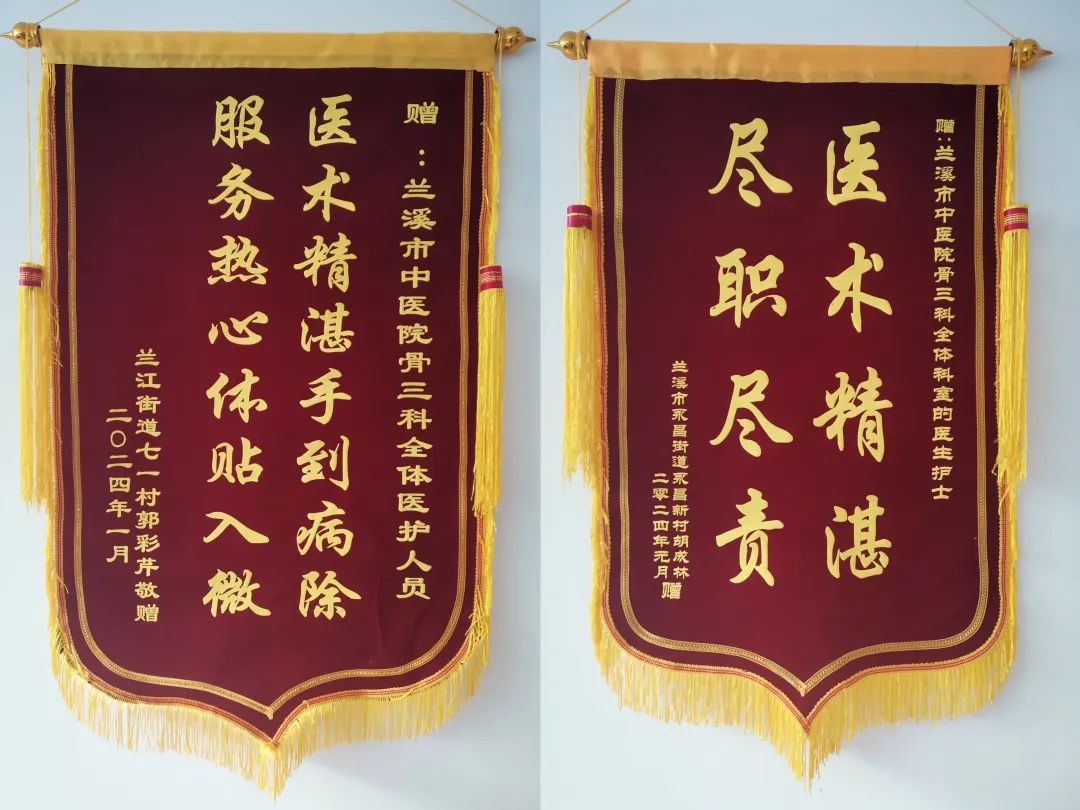 赠：兰溪市中医院骨三科全体医护人员
医术精湛手到病除
服务热心体贴入微
兰江街道七一村郭彩芹敬赠
二〇二四年一月
赠：兰溪市中医院骨三科全体科室的医生护士
医术精湛
尽职尽责
兰溪市永昌街道永昌新村胡成林
二零二四年元月赠